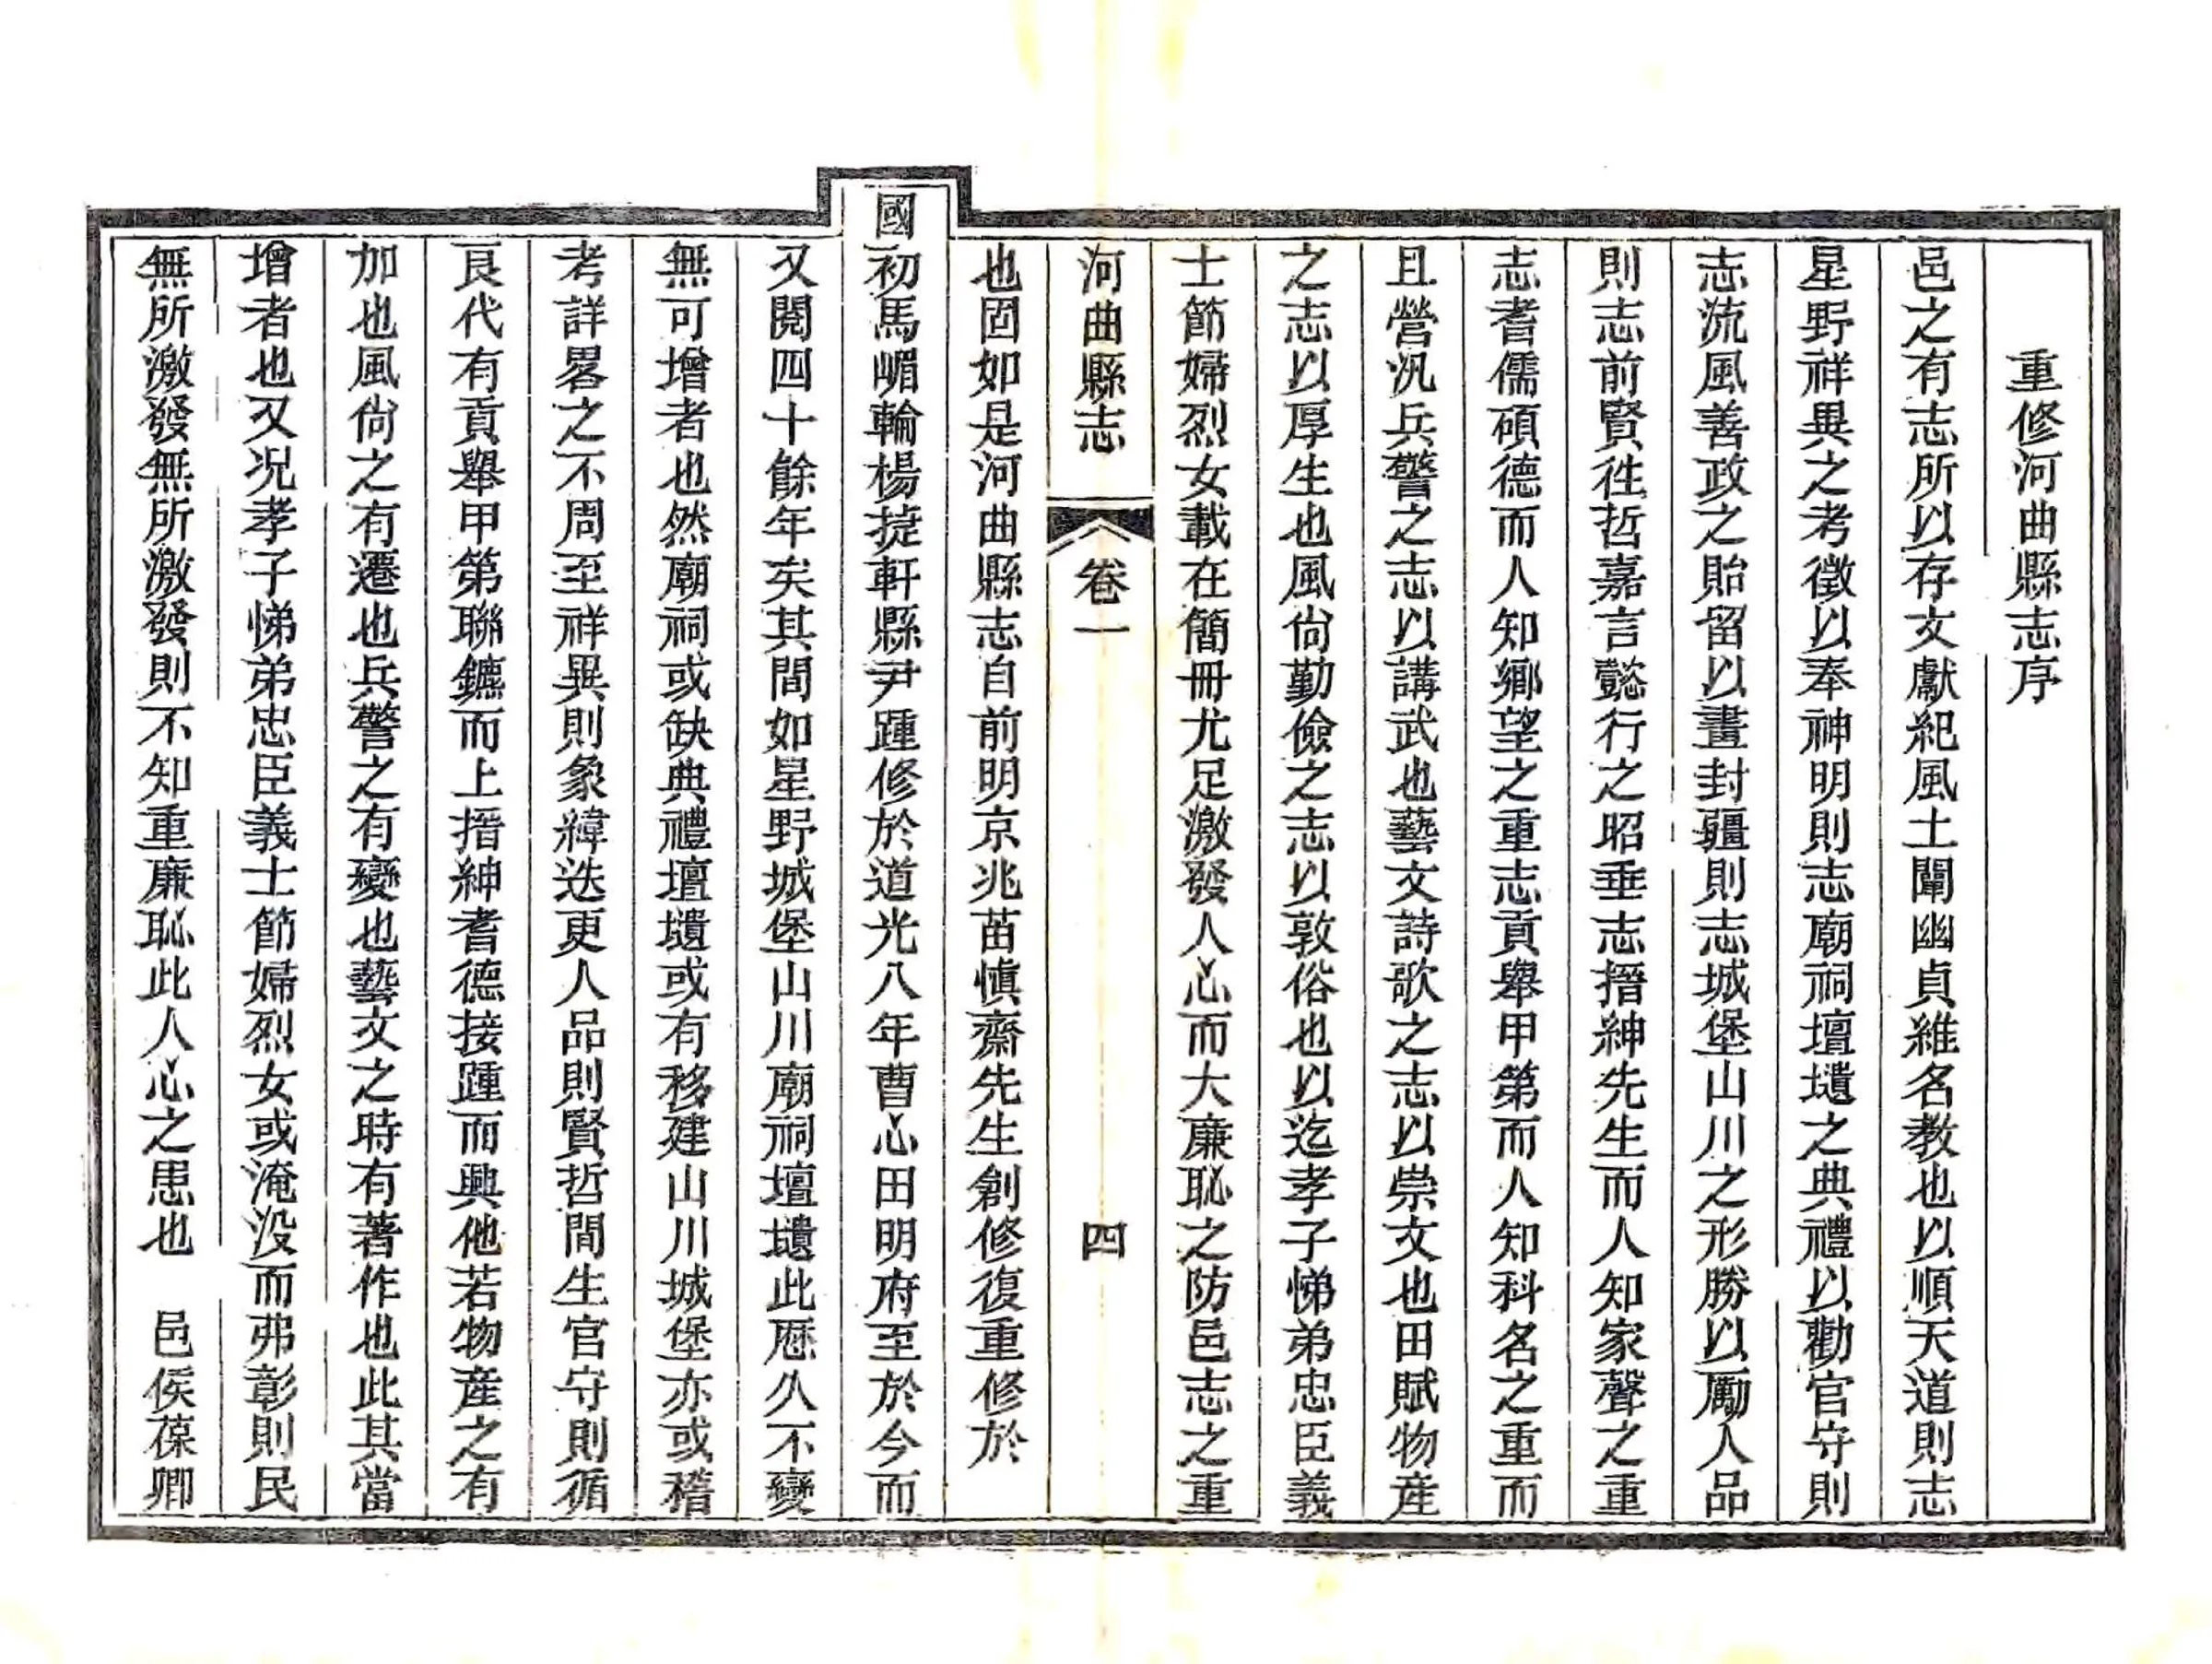 重修河曲縣志序
邑之有志所以存文獻紀風土闡幽貞維名教也以順天道則志
星野祥異之考徵以奉神明則志廟祠壇壝之典禮以勸官守則
志流風善政之貽留以畫封疆則志城堡山川之形勝以勵人品
則志前賢徃哲嘉言懿行之昭垂志搢紳先生而人知家聲之重
志耆儒碩德而人知鄉望之重志貢舉甲第而人知科名之重而
且營汛兵警之志以講武也藝文詩歌之志以崇文也田賦物産
之志以厚生也風尙勤儉之志以敦俗也以迄孝子悌弟忠臣義
士節婦烈女載在簡冊尤足激發人心而大廉恥之防邑志之重
河曲縣志 卷一 四
也固如是河曲縣志自前明京兆苗愼齋先生創修復重修於
國初馬嵋輪楊㨗軒縣尹踵修於道光八年曹心田明府至於今而
又閱四十餘年矣其間如星野城堡山川廟祠壇壝此歷久不變
無可增者也然廟祠或缺典禮壇壝或有移建山川城堡亦或稽
考詳畧之不周至祥異則象緯迭更人品則賢哲間生官守則循
良代有貢舉甲第聯鑣而上搢紳耆德接踵而興他若物産之有
加也風尙之有遷也兵警之有變也藝文之時有著作也此其當
增者也又况孝子悌弟忠臣義士節婦烈女或淹没而弗彰則民
無所激發無所激發則不知重廉恥此人心之患也 邑侯葆卿